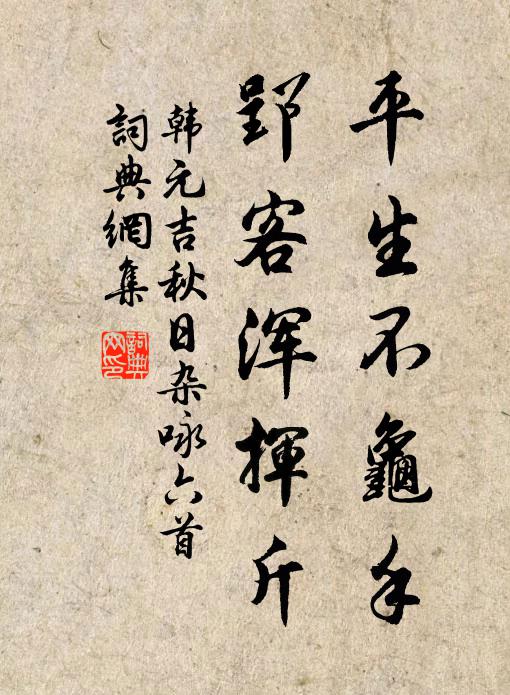 平生不龜手
郢客浑揮斤
韩元吉秋日杂咏六首
詞典網集
詞典网印